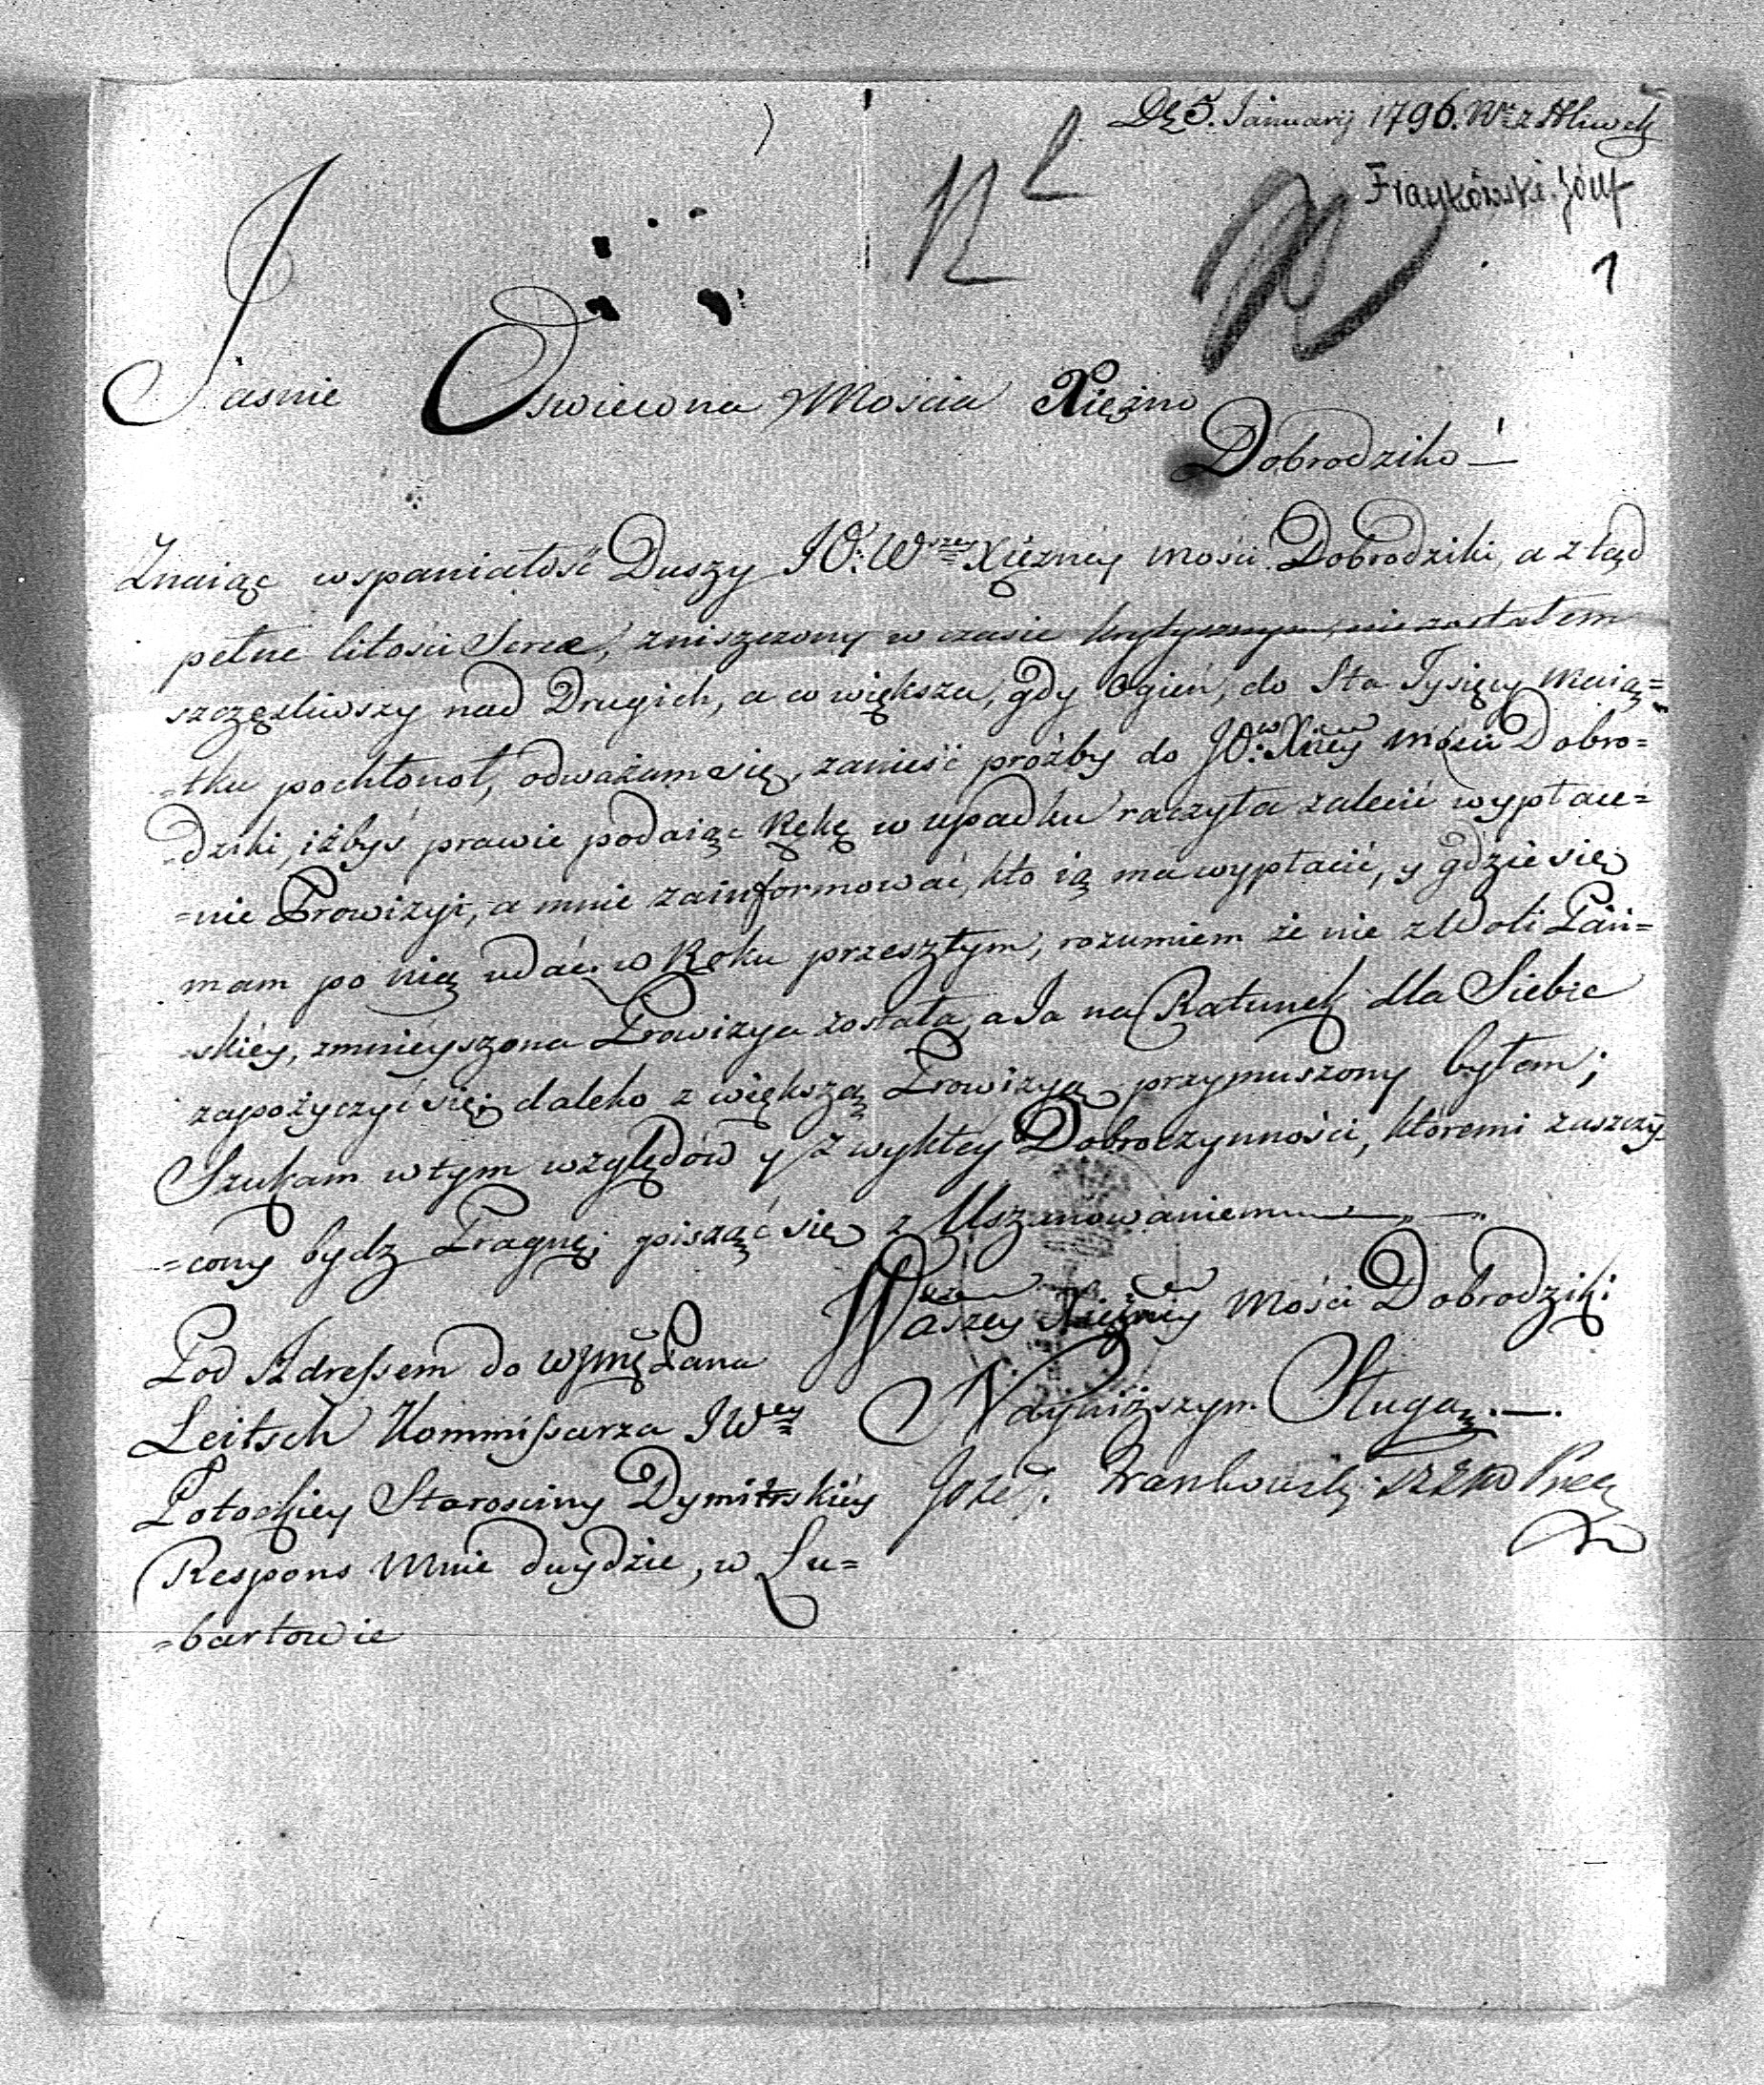 5. January 1796. R z
Frankowski Józef
1
Jasnie Oswiecona Mościa Xiężno
Dobrodziko
Znaiąc wspaniałość Duszy JO: Wszey Xiężney Mości Dobrodziki, a ztąd
pełne litości Serce, zniszczony w czasie krytycznym, nie zostałem
szczęśliwszy nad Drugich, a co większa, gdy Ogień, do Sta Tysięcy Maią=
=tku pochłonoł, odważam się, zanieść prożby do JO: Xney Mości Dobro=
=dziki, iżbyś prawie podaiąc Rękę w upadku raczyła zalecić wypłace=
=nie Prowizyi, a mnie zainformować, kto ią ma wypłacić, y gdzie się
mam po nią udać. w Roku przeszłym, rozumiem że nie z Woli Pań=
=skiéy, zmnieyszona Prowizya została, a Ja na Ratunek dla Siebie
zapożyczyć się daleko z większą Prowizyą przymuszony byłem;
Szukam w tym względów y zwykłey Dobroczynności, któremi zaszczy=
=cony bydz Pragnę; pisząć się z Uszanowaniem
Waszey Xiężney Mości Dobrodziki
Pod Adressem do WJmę Pana
Leitsch Kommissarza JWey
Potockiey Starosciny Dymirskiéy
Respons Mnie duydzie, w Lu=
=bartowie
Nayniższym Sługą.
Jozef Frankowski